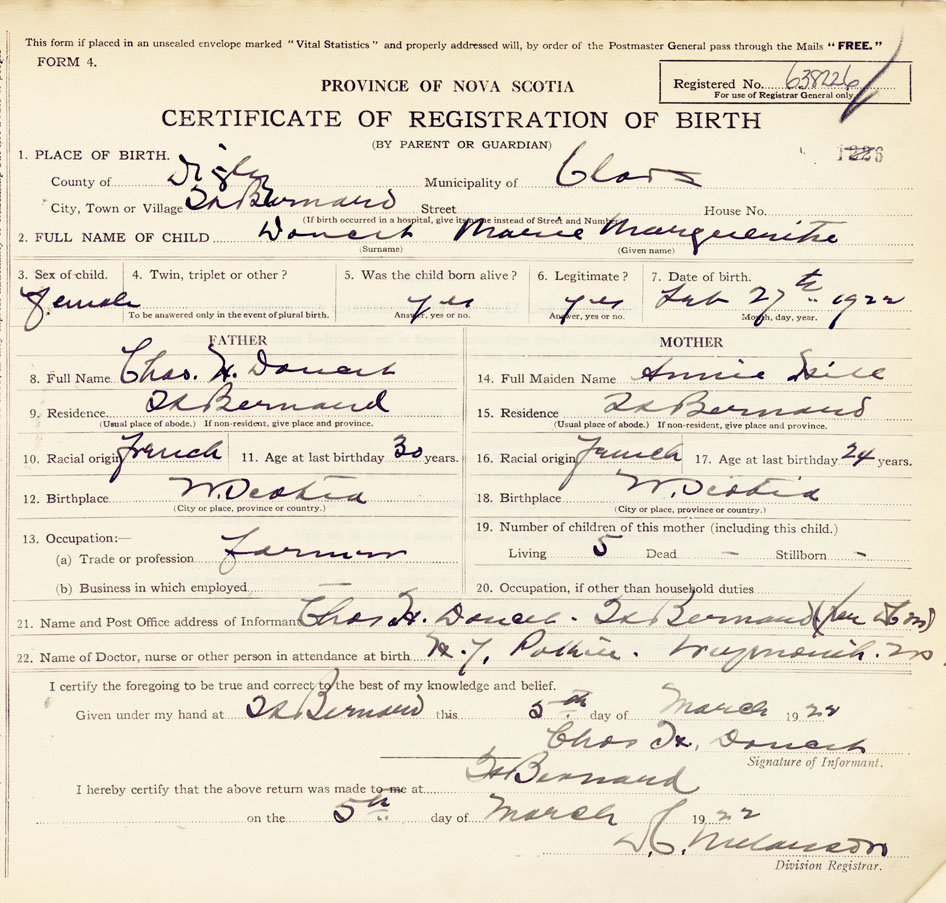 This form if placed in an unsealed envelope marked "Vital Statistics" and properly addressed will, by order of the Postmaster General pass through the Mails "FREE."
FORM 4.
PROVINCE OF NOVA SCOTIA
Registered No. 638226
For use of Registrar General only
CERTIFICATE OF REGISTRATION OF BIRTH
(BY PARENT OR GUARDIAN)
1226
1. PLACE OF BIRTH.
County of Digby Municipality of Clare
City, Town or Village St Bernard Street House No.
(If birth occurred in a hospital, give its name instead of Street and Number)
2. FULL NAME OF CHILD Doucet Marie Marguerite
(Surname) (Given name)
3. Sex of child. 4. Twin, triplet or other? 5. Was the child born alive? 6. Legitimate? 7. Date of birth.
Female yes yes Feb 27th 1922
To be answered only in the event of plural birth. Answer, yes or no. Answer, yes or no. Month, day, year.
FATHER
8. Full Name Chas. H. Doucet
9. Residence St Bernard
(Usual place of abode.) If non-resident, give place and province.
10. Racial origin French 11. Age at last birthday 30 years.
12. Birthplace N. Scotia
(City or place, province or country.)
13. Occupation:—
(a) Trade or profession farmer
(b) Business in which employed
MOTHER
14. Full Maiden Name Annie
15. Residence St Bernard
(Usual place of abode.) If non-resident, give place and province.
16. Racial origin French 17. Age at last birthday 24 years.
18. Birthplace N. Scotia
(City or place, province or country.)
19. Number of children of this mother (including this child.)
Living 5 Dead - Stillborn -
20. Occupation, if other than household duties
21. Name and Post Office address of Informant Chas H. Doucet. St Bernard
22. Name of Doctor, nurse or other person in attendance at birth Pothier. Weymouth. NS
I certify the foregoing to be true and correct to the best of my knowledge and belief.
Given under my hand at St Bernard this 5th day of March 1922
Chas H. Doucet
Signature of Informant.
I hereby certify that the above return was made to me at St Bernard
on the 5th day of March 1922
Melanson
Division Registrar.